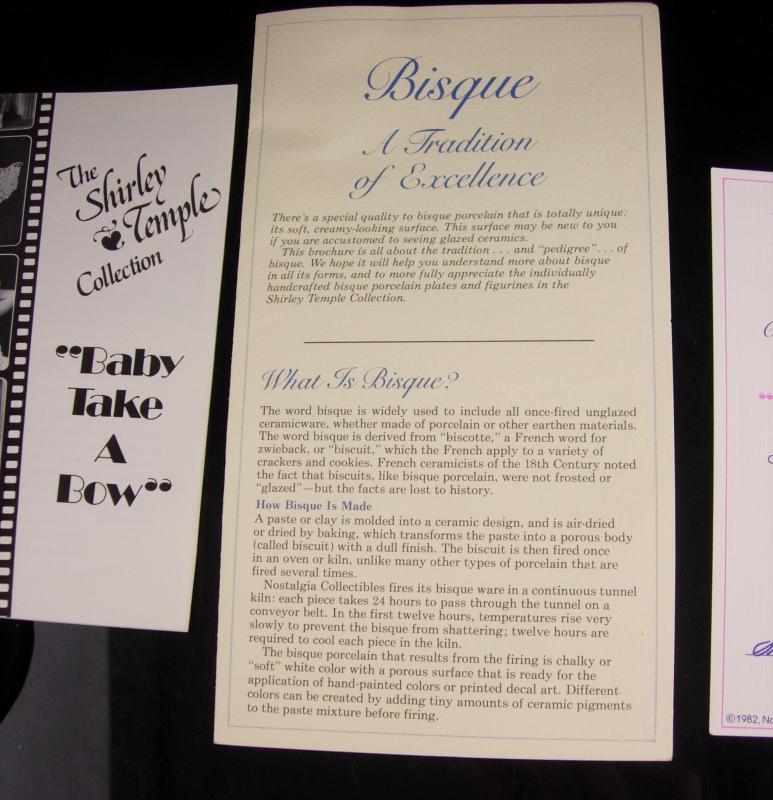 The
Shirley
Temple
Collection
““Baby
Take
A
Bow””
Bisque
A Tradition
of Excellence
There's a special quality to bisque porcelain that is totally unique:
its soft, creamy-looking surface. This surface may be new to you
if you are accustomed to seeing glazed ceramics.
This brochure is all about the tradition . . . and “pedigree” . . . of
bisque. We hope it will help you understand more about bisque
in all its forms, and to more fully appreciate the individually
handcrafted bisque porcelain plates and figurines in the
Shirley Temple Collection.
What Is Bisque?
The word bisque is widely used to include all once-fired unglazed
ceramicware, whether made of porcelain or other earthen materials.
The word bisque is derived from “biscotte,” a French word for
zwieback, or “biscuit,” which the French apply to a variety of
crackers and cookies. French ceramicists of the 18th Century noted
the fact that biscuits, like bisque porcelain, were not frosted or
“glazed”—but the facts are lost to history.
How Bisque Is Made
A paste or clay is molded into a ceramic design, and is air-dried
or dried by baking, which transforms the paste into a porous body
(called biscuit) with a dull finish. The biscuit is then fired once
in an oven or kiln, unlike many other types of porcelain that are
fired several times.
Nostalgia Collectibles fires its bisque ware in a continuous tunnel
kiln: each piece takes 24 hours to pass through the tunnel on a
conveyor belt. In the first twelve hours, temperatures rise very
slowly to prevent the bisque from shattering; twelve hours are
required to cool each piece in the kiln.
The bisque porcelain that results from the firing is chalky or
“soft” white color with a porous surface that is ready for the
application of hand-painted colors or printed decal art. Different
colors can be created by adding tiny amounts of ceramic pigments
to the paste mixture before firing.
©1982,